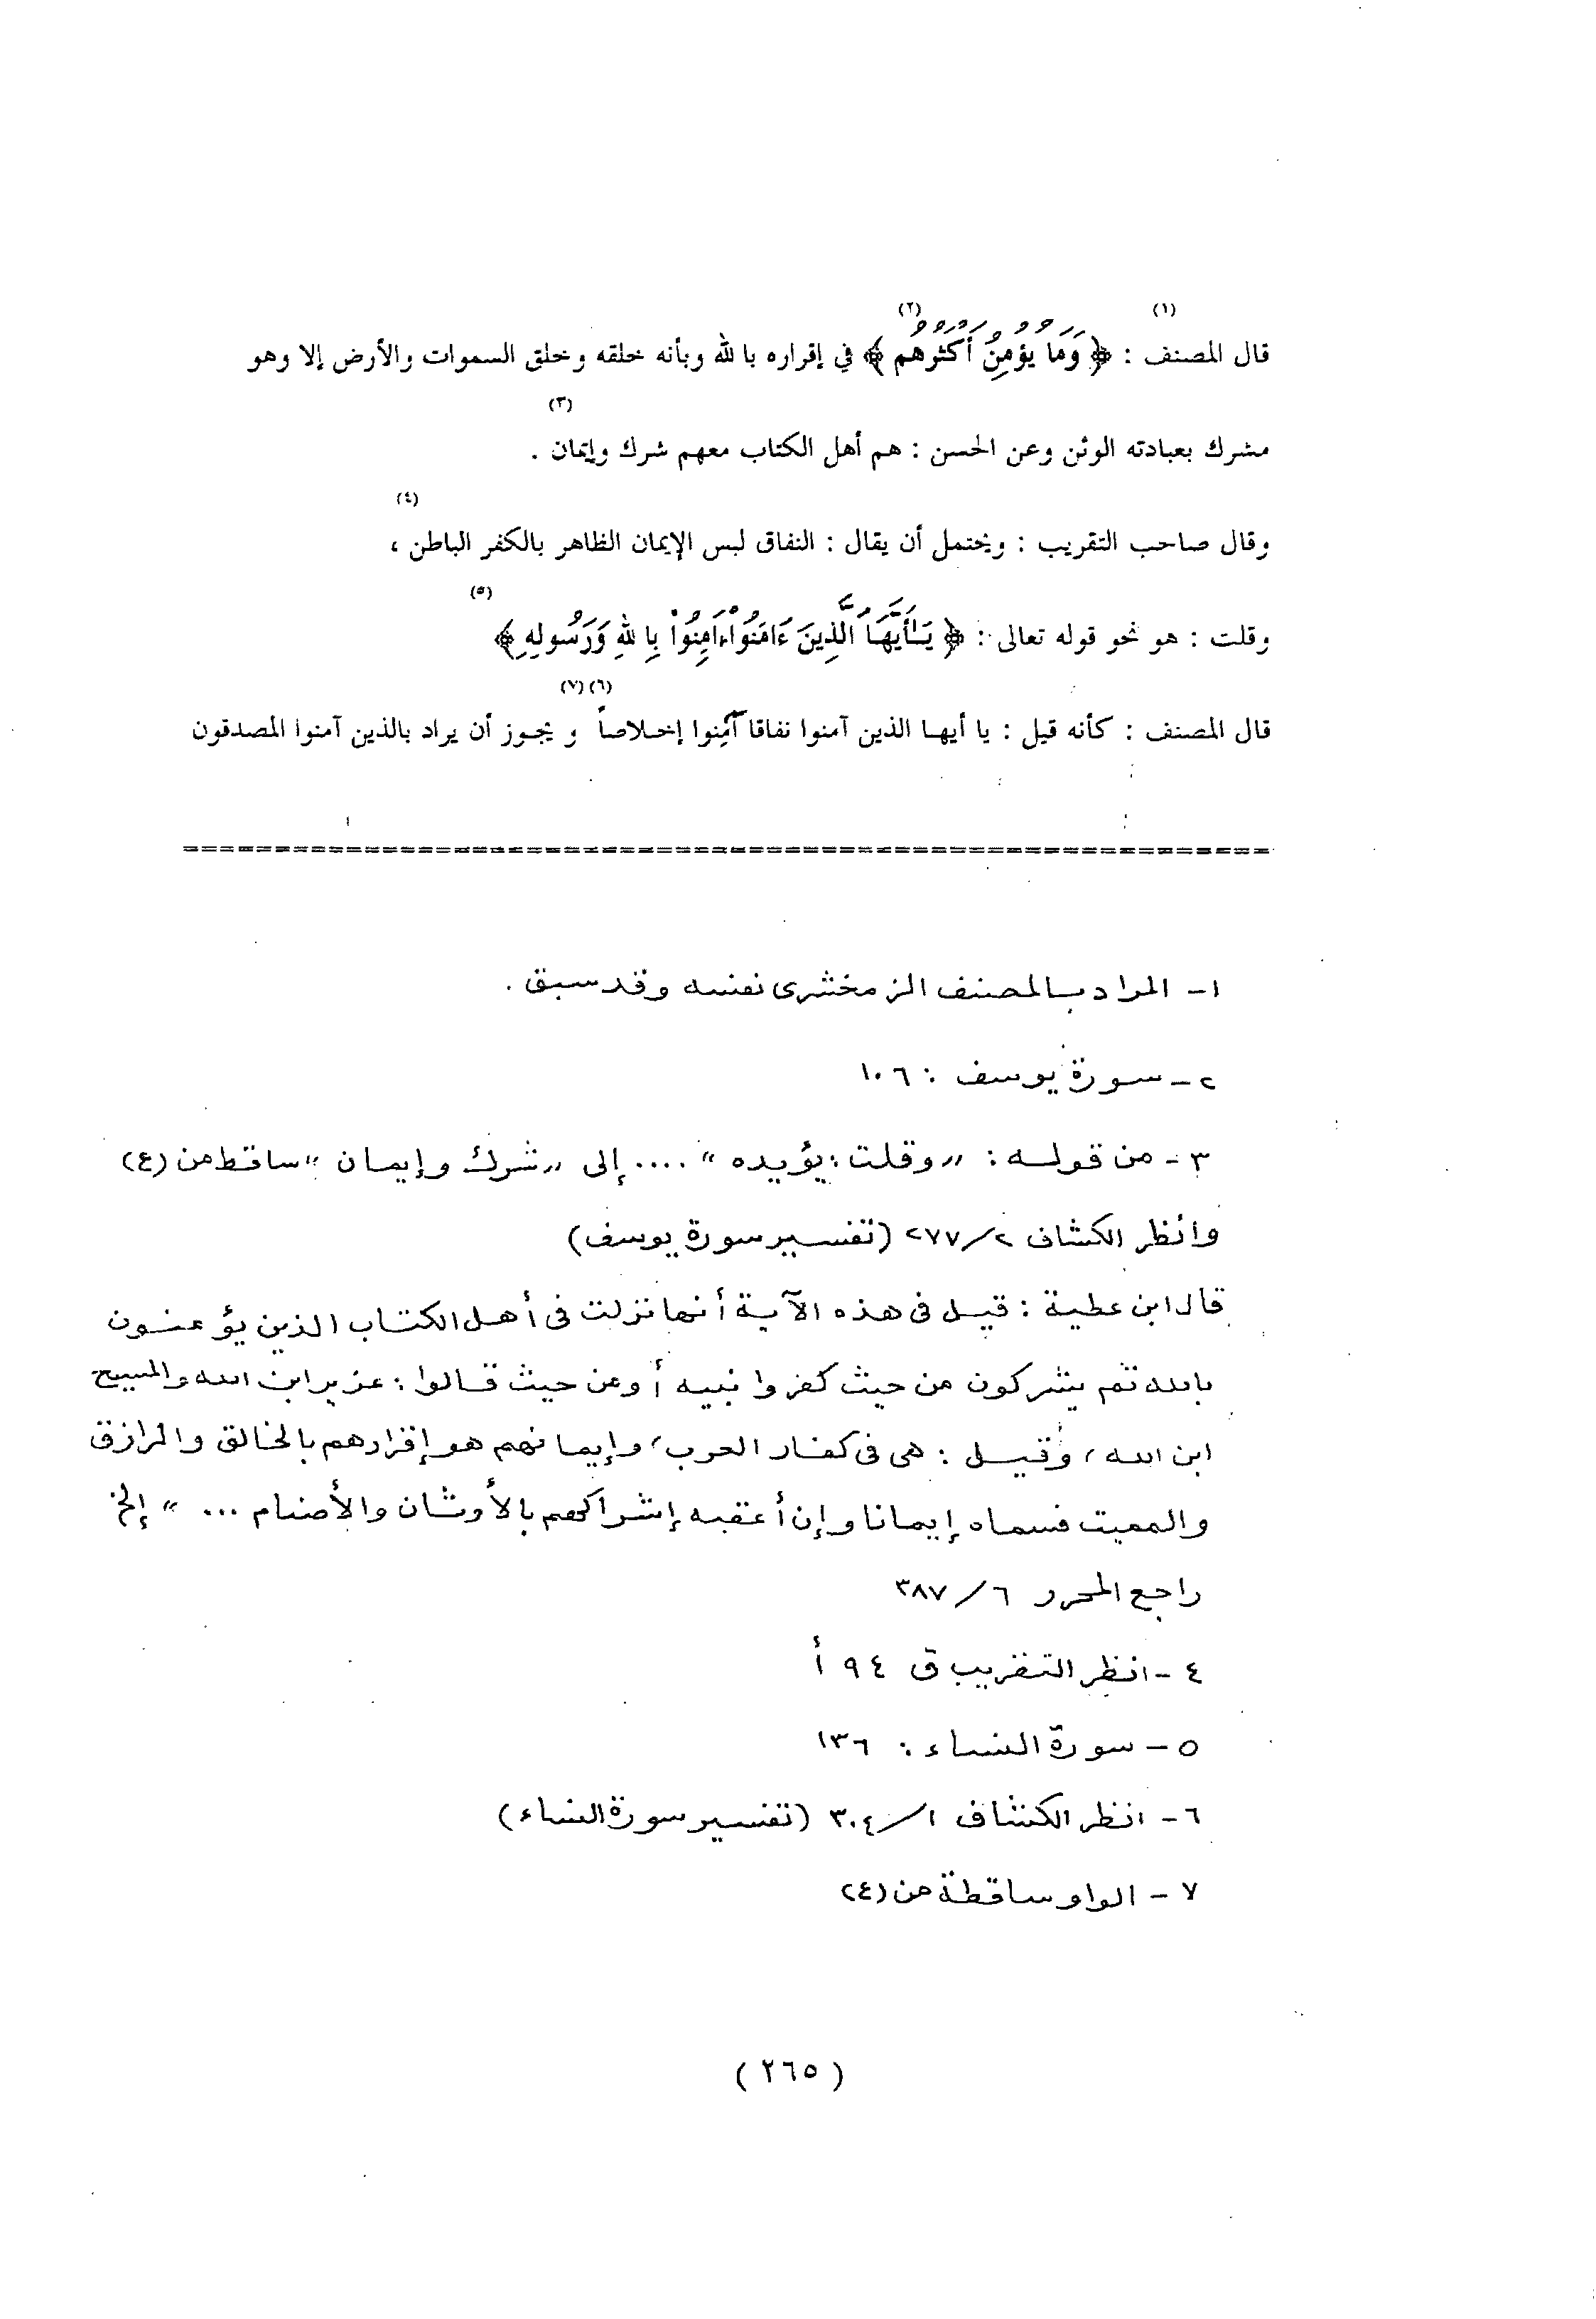 (١) (٢)
قال المصنف : ﴿ وَمَا يُؤْمِنُ أَكْثَرُهُم ﴾ في إقراره بالله وبأنه خلقه وخلق السموات والأرض إلا وهو
(٣)
مشرك بعبادته الوثن وعن الحسن : هم أهل الكتاب معهم شرك وإيمان .
(٤)
وقال صاحب التقريب : ويحتمل أن يقال : النفاق لبس الإيمان الظاهر بالكفر الباطن ،
(٥)
وقلت : هو نحو قوله تعالى : ﴿ يَٰأَيُّهَا الَّذِينَ ءَامَنُواْ ءَامِنُواْ بِاللهِ وَرَسُولِهِ ﴾
(٦) (٧)
قال المصنف : كأنه قيل : يا أيها الذين آمنوا نفاقا آمِنوا إخلاصاً و يجوز أن يراد بالذين آمنوا المصدقون
١- المراد بالمصنف الزمخشرى نفسه وقد سبق .
٢- سورة يوسف : ١٠٦
٣- من قوله : „ وقلت : يؤيده “ .... إلى „ شرك وإيمان “ ساقط من (ع)
وانظر الكشاف ٢/٢٧٧ (تفسير سورة يوسف)
قال ابن عطية : قيل فى هذه الآية أنها نزلت فى أهل الكتاب الذين يؤمنون
بالله ثم يشركون من حيث كفروا نبيه أو من حيث قالوا : عزير ابن الله والمسيح
ابن الله ، وقيل : هى فى كفار العرب ، وإيمانهم هو إقرارهم بالخالق والرازق
والمميت فسماه إيمانا وإن أعقبه إشراكهم بالأوثان والأصنام ... “ إلخ
راجع المحرر ٦/٣٨٧
٤- انظر التقريب ق ٩٤ أ
٥- سورة النساء : ١٣٦
٦- انظر الكشاف ١/٣٠٤ (تفسير سورة النساء)
٧- الواو ساقطة من (ع)
( ٢٦٥ )